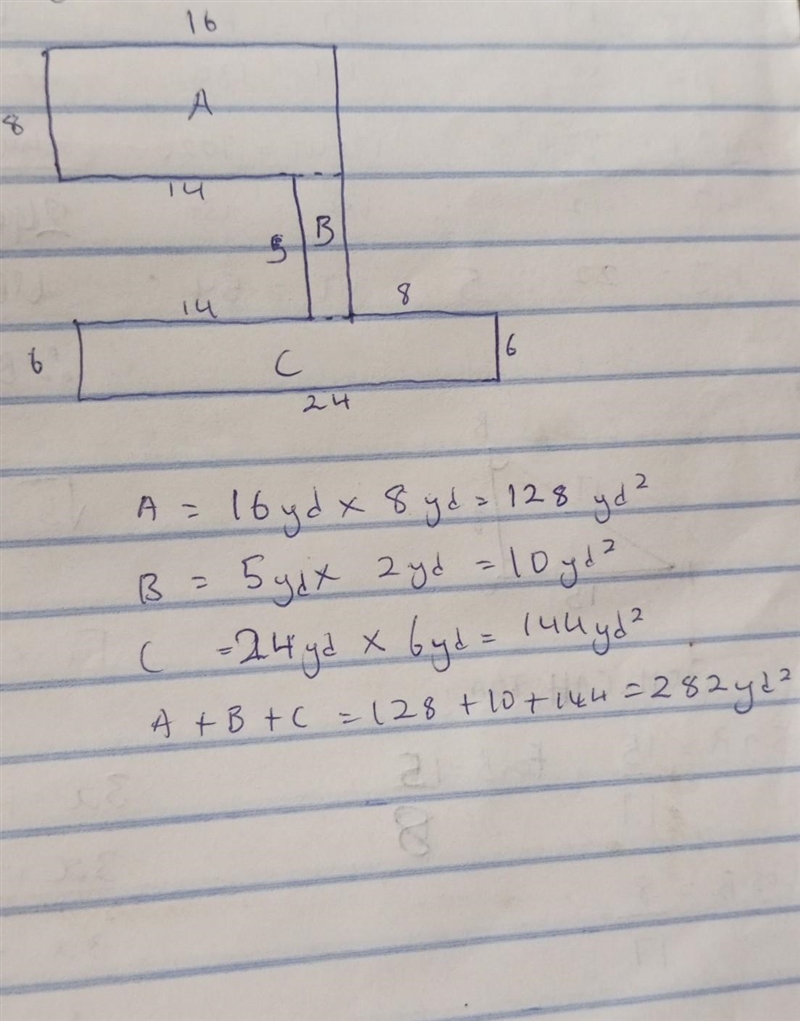 16
A
8
14
5 B
14 8
6 C 6
24
A = 16yd × 8yd = 128 yd²
B = 5yd × 2yd = 10yd²
C = 24yd × 6yd = 144yd²
A + B + C = 128 + 10 + 144 = 282yd²